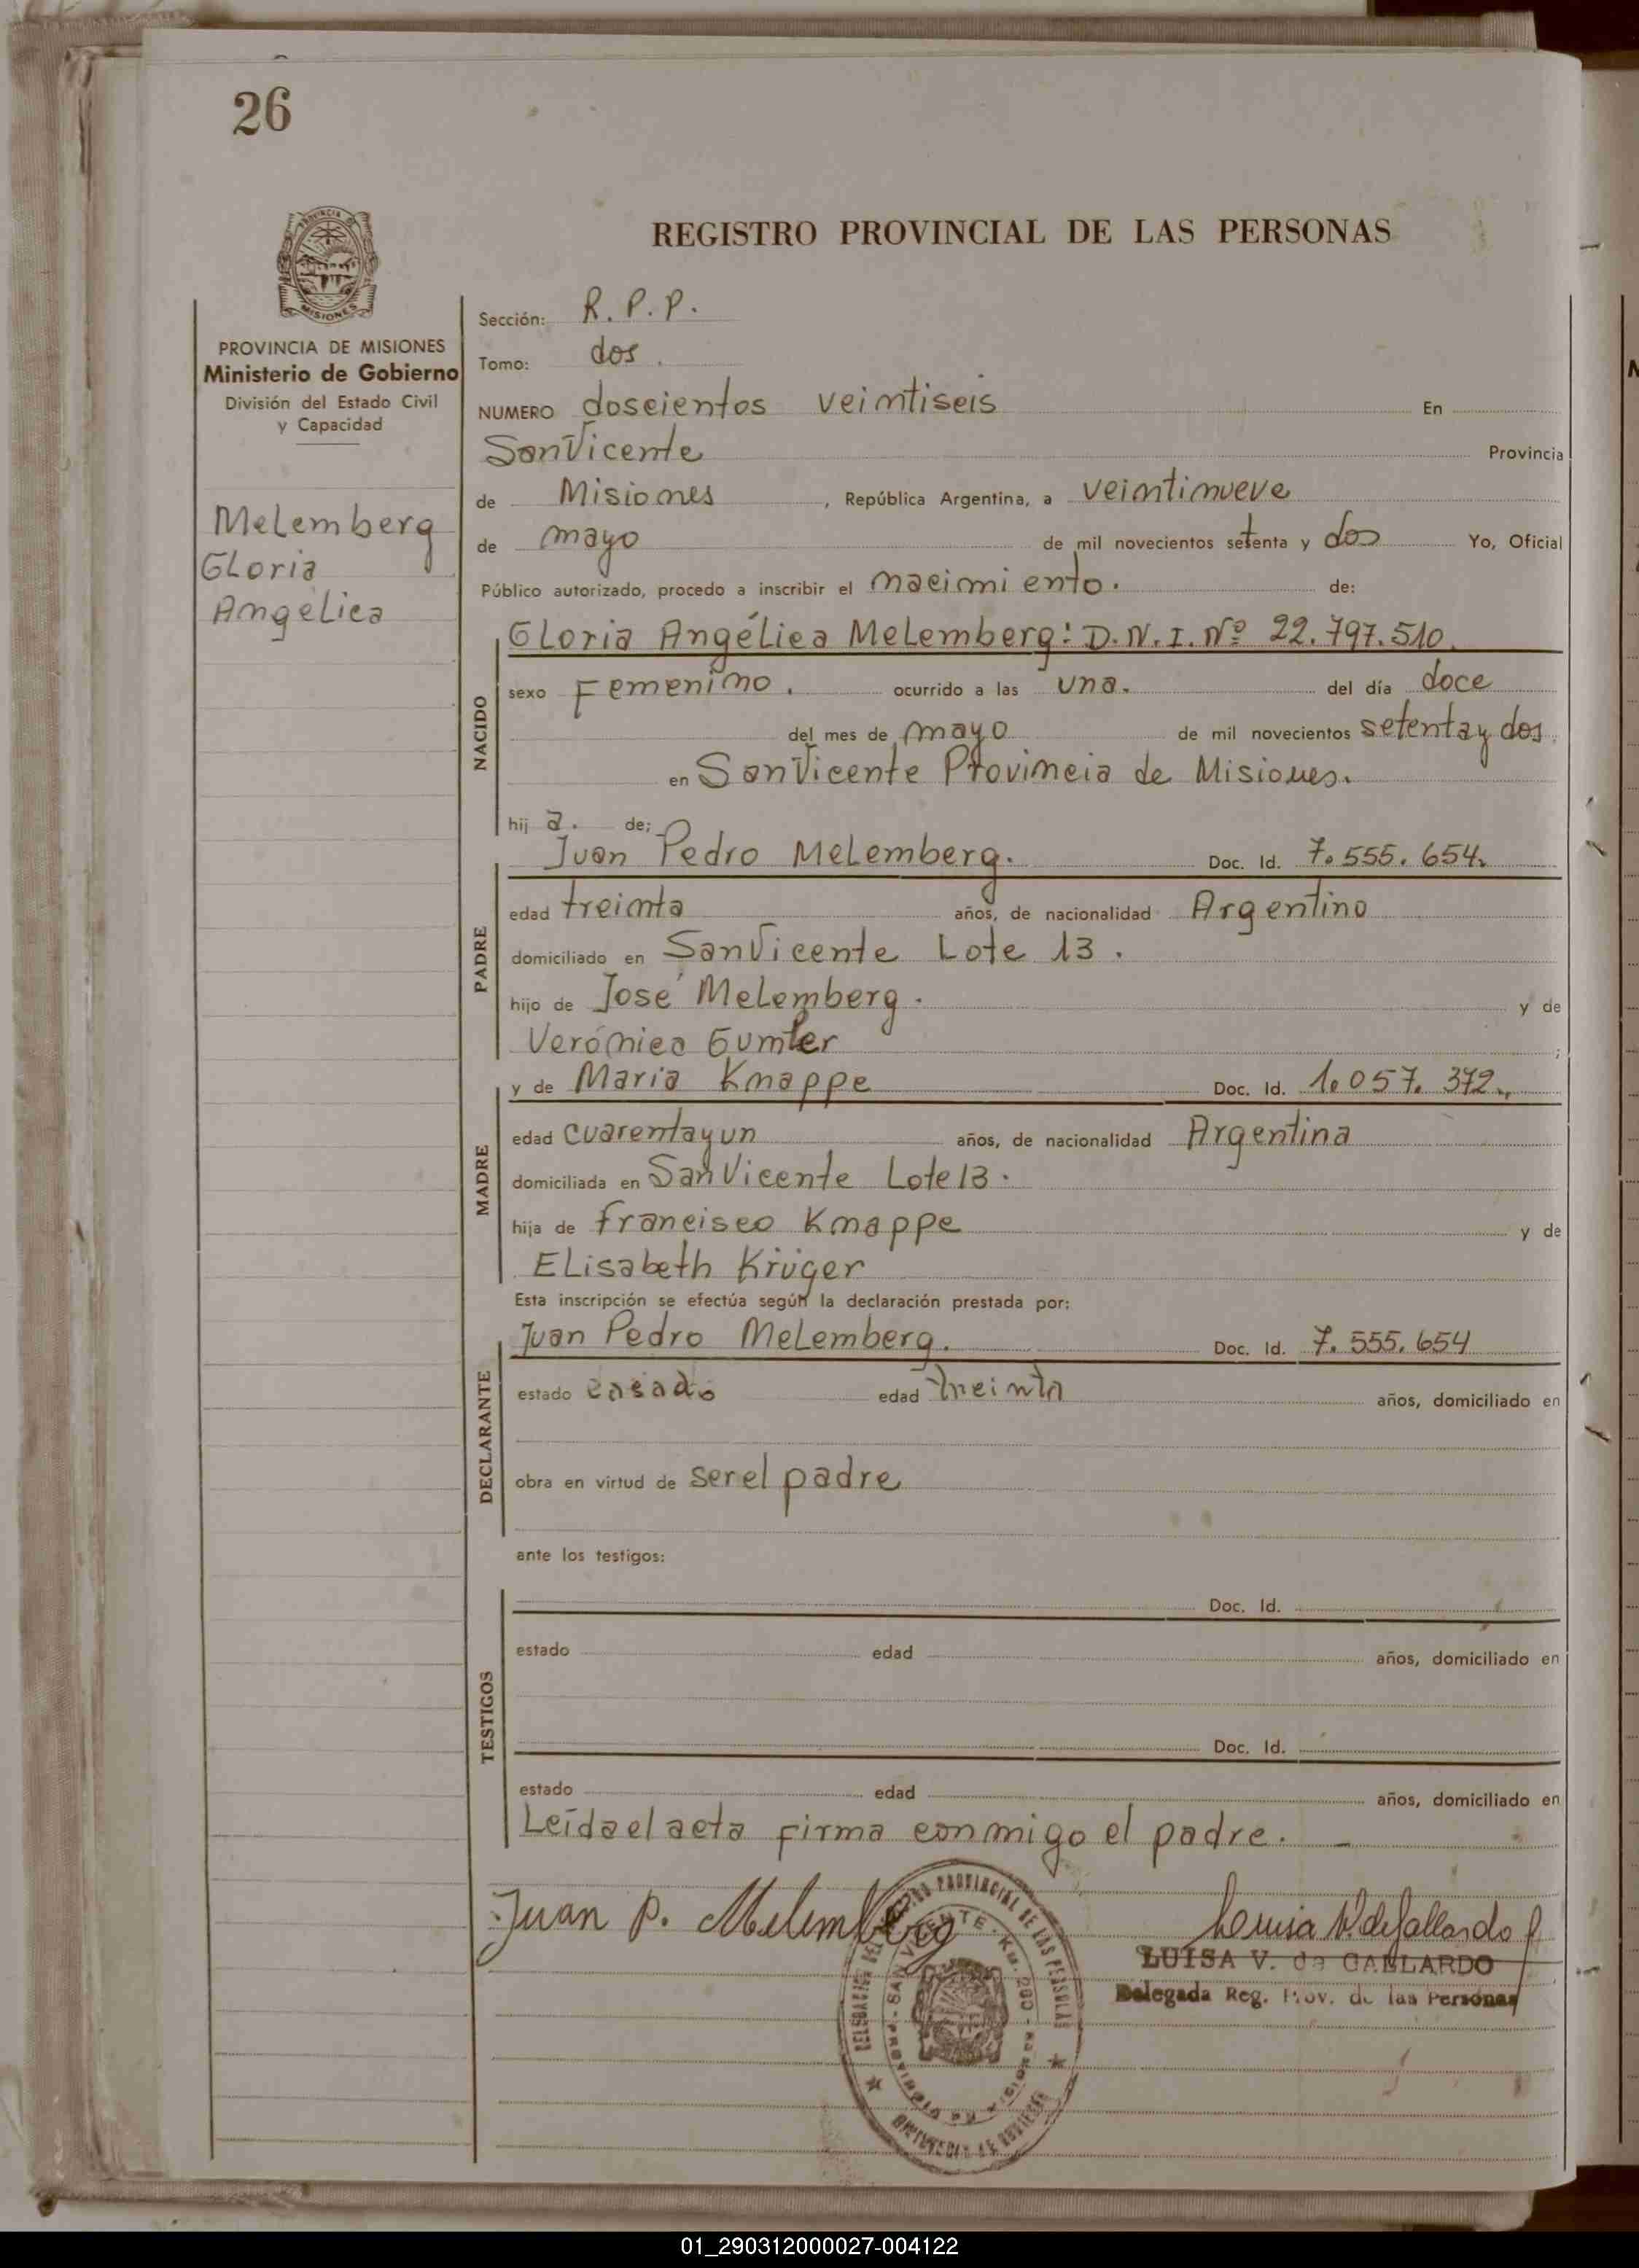 26
REGISTRO PROVINCIAL DE LAS PERSONAS
PROVINCIA DE MISIONES
Ministerio de Gobierno
División del Estado Civil
y Capacidad
Melemberg
Gloria
Angélica
Sección: R. P. P.
Tomo: dos.
NUMERO doscientos veintiseis En
San Vicente Provincia
de Misiones, República Argentina, a veintinueve
de mayo de mil novecientos setenta y dos Yo, Oficial
Público autorizado, procedo a inscribir el nacimiento. de:
NACIDO
Gloria Angélica Melemberg: D.N.I. Nº 22.797.510.
sexo Femenino. ocurrido a las una. del día doce
del mes de mayo de mil novecientos setenta y dos.
en San Vicente Provincia de Misiones.
hij a. de;
PADRE
Juan Pedro Melemberg. Doc. Id. 7.555.654.
edad treinta años, de nacionalidad Argentino
domiciliado en San Vicente Lote 13.
hijo de José Melemberg. y de
Verónica Gumler ;
MADRE
y de Maria Knappe Doc. Id. 1.057.372.
edad cuarenta y un años, de nacionalidad Argentina
domiciliada en San Vicente Lote 13.
hija de Francisco Knappe y de
Elisabeth Krüger
Esta inscripción se efectúa según la declaración prestada por:
DECLARANTE
Juan Pedro Melemberg. Doc. Id. 7.555.654
estado casado edad treinta años, domiciliado en
obra en virtud de ser el padre
ante los testigos:
TESTIGOS
Doc. Id.
estado edad años, domiciliado en
Doc. Id.
estado edad años, domiciliado en
Leída el acta firma conmigo el padre. -
Juan P. Melemberg
Luisa V. de Gallardo
LUISA V. de GALLARDO
Delegada Reg. Prov. de las Personas
PROVINCIAL DE LAS PERSONAS
SAN VICENTE - Km.
01_290312000027-004122